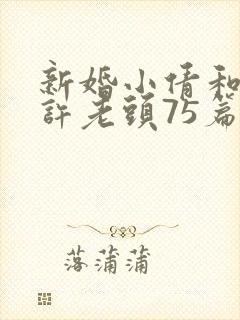 新婚小倩和
許老頭75篇
落蒲蒲